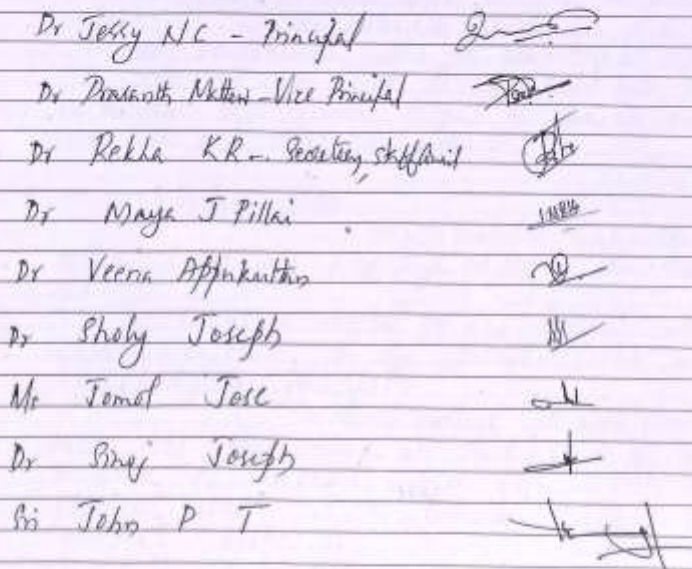 Dr Jessy N C - Principal
Dr Prasanth Mathew - Vice Principal
Dr Rekha KR - Secretary, Staff Council
Dr Maya J Pillai
Dr Veena Appukuttan
Dr Sholy Joseph
Ms Jomol Jose
Dr Siraj Joseph
Sri John P T